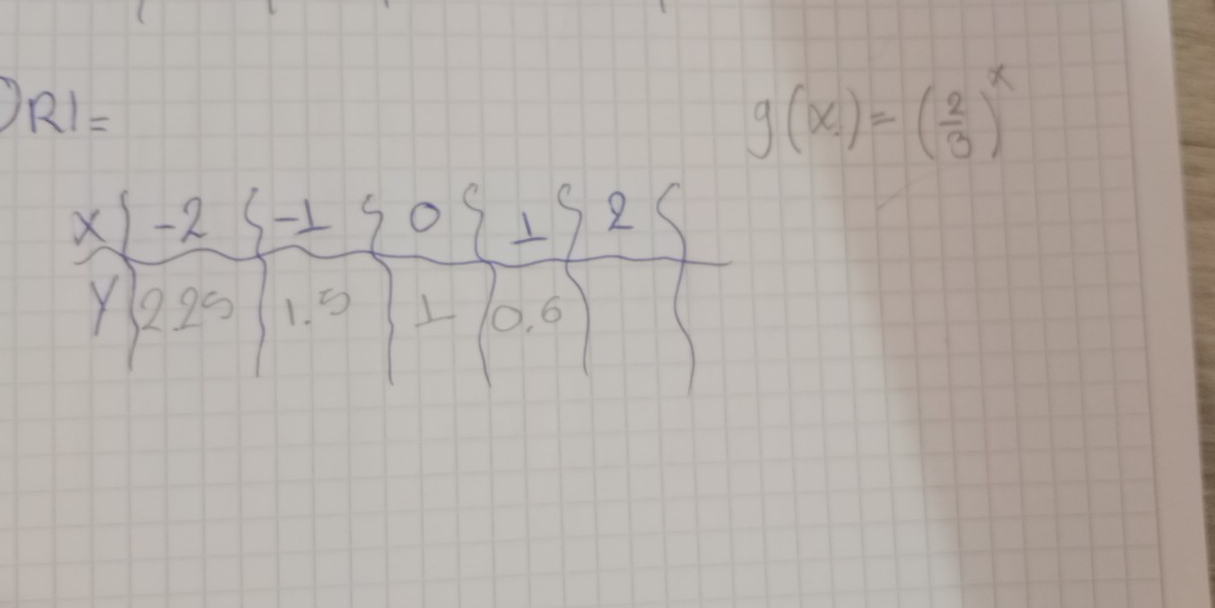 RI=
g(x)=(2/3)^x
x -2 -1 0 1 2
y 2.25 1.5 1 0.6